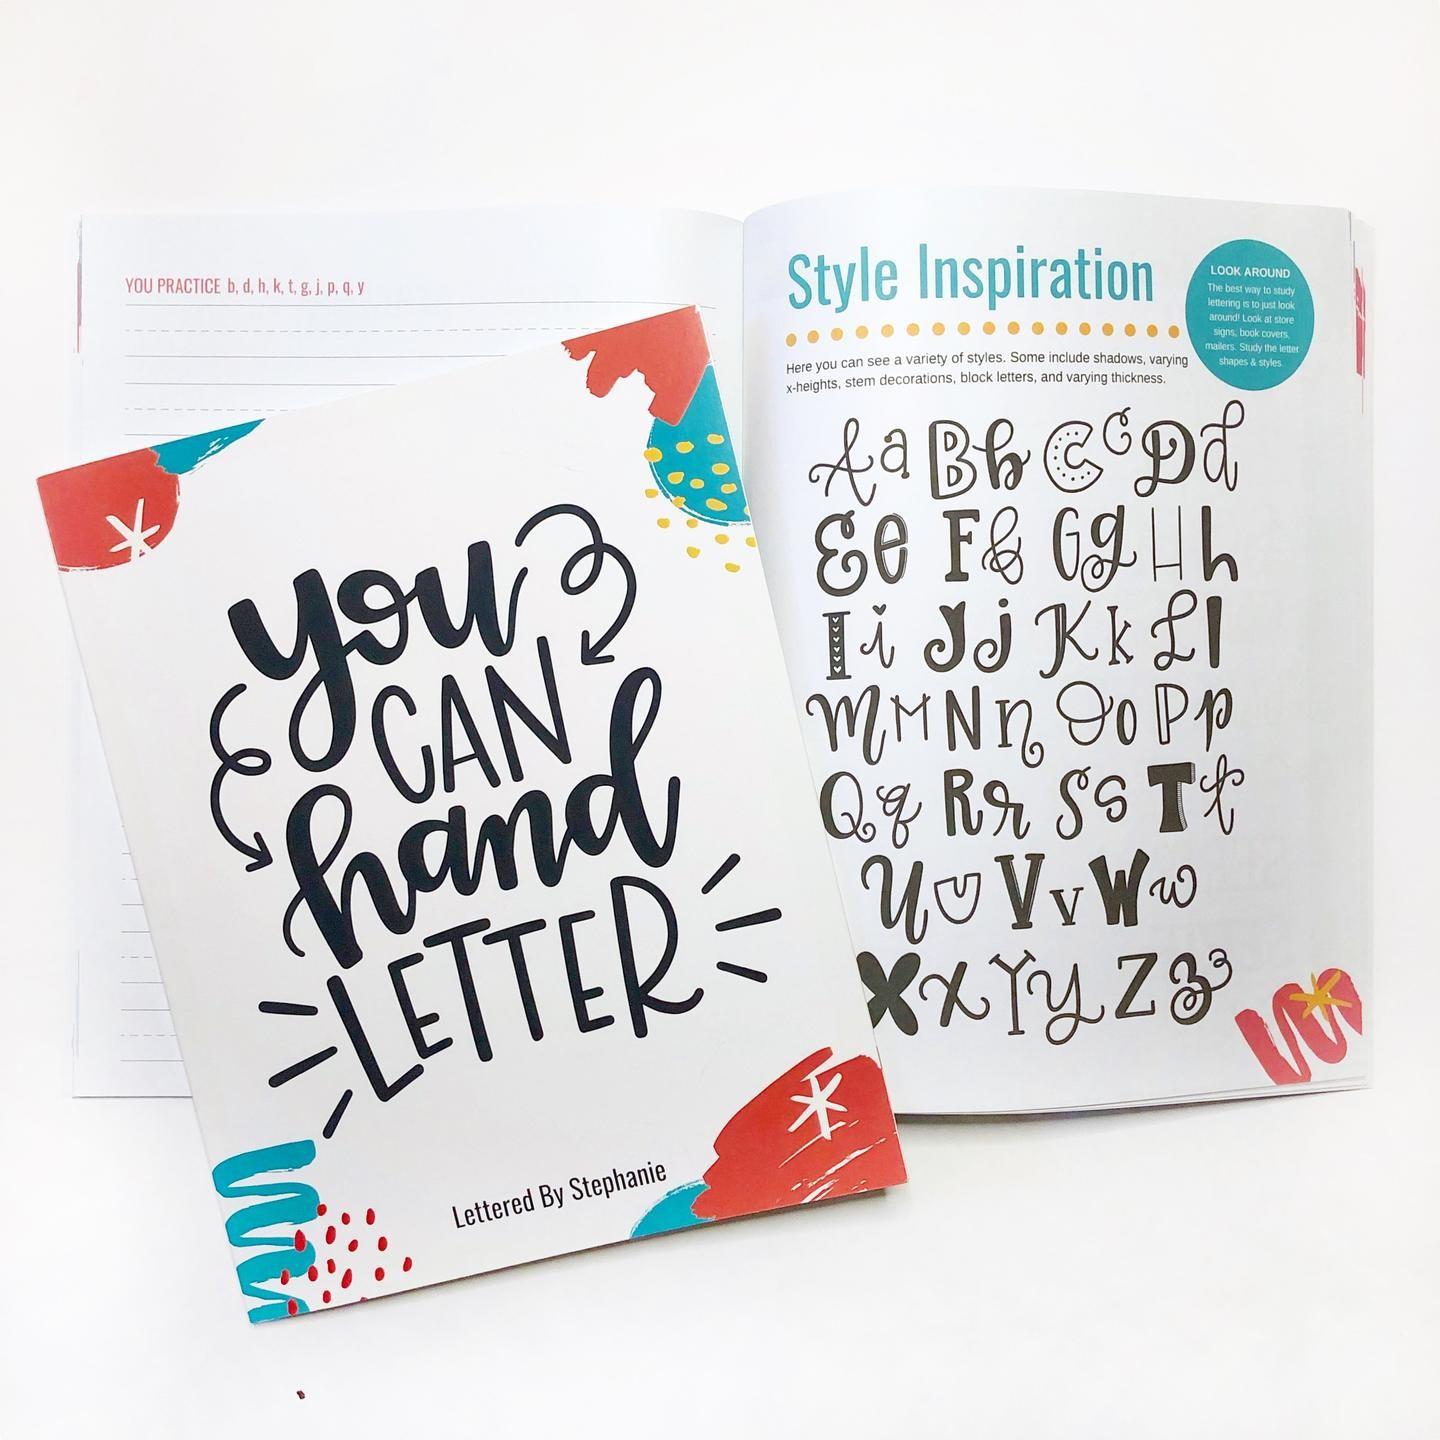 YOU PRACTICE b, d, h, k, t, g, j, p, q, y
you
CAN
hand
LETTER
Lettered By Stephanie
Style Inspiration
LOOK AROUND
The best way to study
lettering is to just look
around! Look at store
signs, book covers,
mailers. Study the letter
shapes & styles.
Here you can see a variety of styles. Some include shadows, varying
x-heights, stem decorations, block letters, and varying thickness.
A a B b C c D d
E e F f G g H h
I i J j K k L l
M m N n O o P p
Q q R r S s T t
U u V v W w
X x Y y Z z